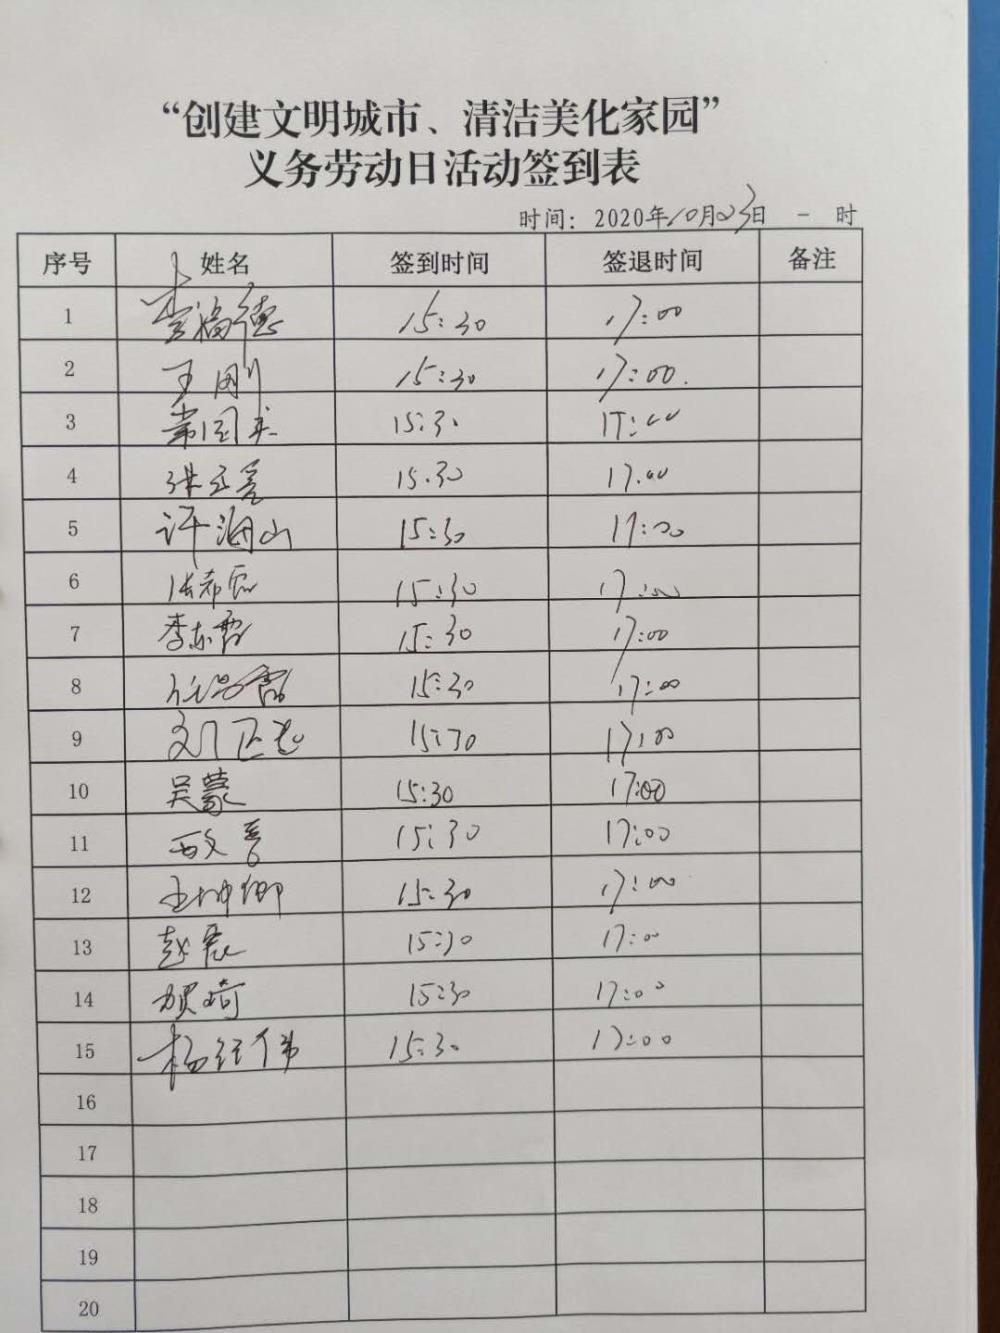 “创建文明城市、清洁美化家园”
义务劳动日活动签到表
时间：2020年10月23日 - 时
序号 姓名 签到时间 签退时间 备注
1 李福德 15:30 17:00
2 王刚 15:30 17:00.
3 15:30 17:00
4 张 15.30 17.00
5 许海山 15:30 17:00
6 张希 15:30 17:00
7 李東霞 15:30 17:00
8 15:30 17:00
9 15:30 17:00
10 吴蒙 15:30 17:00
11 15:30 17:00
12 王坤卿 15:30 17:00
13 赵 15:30 17:00
14 贺琦 15:30 17:00
15 杨红伟 15:30 17:00
16
17
18
19
20